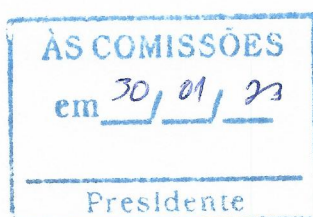 ÀS COMISSÕES
em 30/01/23
Presidente